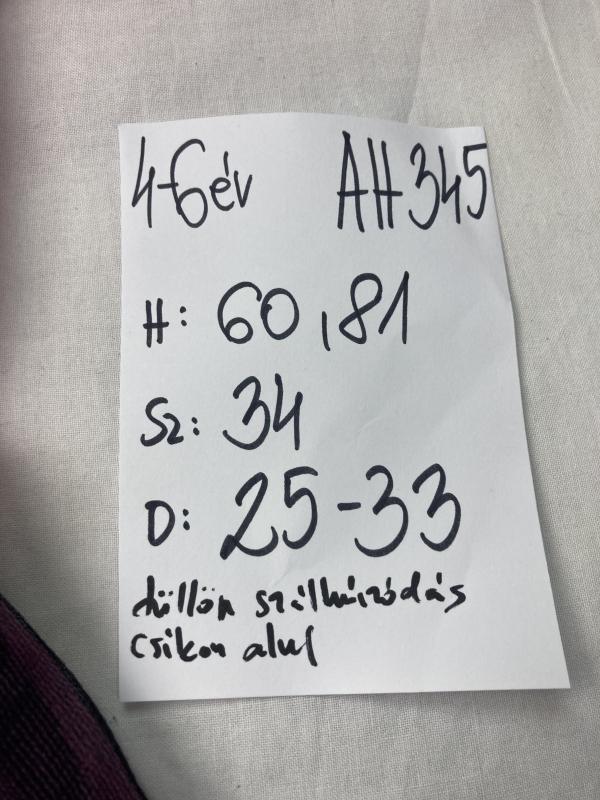 4-6év AH345
H: 60,81
Sz: 34
D: 25-33
tüllön szálhúzódás
csíkon alul